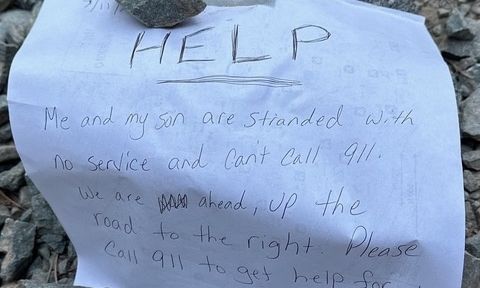 HELP
Me and my son are stranded with
no service and can't call 911.
We are ahead, up the
road to the right. Please
Call 911 to get help for